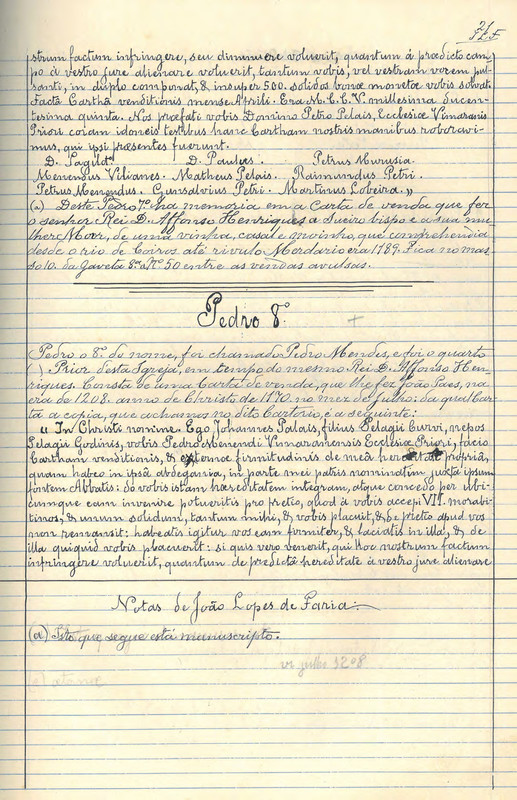 21
F.L.F
strum factum infringere, seu diminuere voluerit, quantum á prædicto cam-
po à vestro jure alienare voluerit, tantum vobis, vel vestram vocem pul-
santi, in duplo componat, & insuper 500. solidos bonæ monetæ vobis solvat.
Facta Carthâ venditionis mense Aprili. Era M.C.C.V. millesima ducen-
tesima quinta. Nos præfati vobis Domino Petro Pelais, Ecclesiæ Vimaranis
Priori coram idoneis testibus hanc Cartham nostris manibus roboravi-
mus, qui ipsi presentes fuerunt.
D. D. Petrus Murusia
Menendus Velianes. Matheus Pelais. Raimundus Petri.
Petrus Menendus. Gunsalvius Petri. Martinus Lobeira."
(a) Deste Pedro 7º ha memoria em a Carta de venda que fez
o senhor Rei D. Affonso Henriques a Sueiro bispo e a sua mu-
lher Mor, de uma vinha, casal e moinho, que comprehendia
desde o rio de Coiros até rivulo Merdario era 1189. Fica no mas-
so 10. da Gaveta 8ª nº 50 entre as vendas avulsas.
Pedro 8º
Pedro o 8º do nome, foi chamado Pedro Mendes, e foi o quarto
( ) Prior desta Igreja, em tempo do mesmo Rei D. Affonso Hen-
riques. Consta de uma Carta de venda, que lhe fez João Paes, na
era de 1208. anno de Christo de 1170. no mez de Julho: da qual Car-
ta a copia, que achamos no dito Cartorio, é a seguinte:
" In Christi nomine. Ego Johannes Palais, filius Pelagii Curvi, nepos
Pelagii Godinis, vobis Pedro Menendi Vimaranensis Ecclesiæ Priori, facio
Cartham venditionis, & firmitudinis de meâ propriâ,
quam habeo in ipsâ abdegania, in parte mei patris nominatim juxtà ipsum
fontem Abbatis: do vobis istam hæreditatem integram, atque concedo per ubi-
cumque eam invenire potueritis pro pretio, quod à vobis accepi VII. morabi-
tinos, & unum solidum, tantum mihi, & vobis placuit, & de pretio apud vos
non remansit: habeatis igitur vos eam firmiter, & faciatis in illa, & de
illa quiquid vobis placuerit: si quis vero venerit, qui hoc nostrum factum
infringere voluerit, quantum de predictâ hereditate à vestro jure alienare
Notas de João Lopes de Faria:
(a) Isto que segue está manuscripto.
vi julho 1208